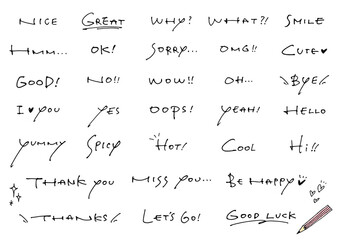 NICE GREAT WHY? WHAT?! SMILE
HMM... OK! SORRY... OMG!! CUTE♥
GOOD! NO!! WOW!! OH... BYE
I ♥ YOU YES OOPS! YEAH! HELLO
YUMMY SPICY HOT! COOL HI!!
THANK YOU MISS YOU... BE HAPPY♥
THANKS LET'S GO! GOOD LUCK